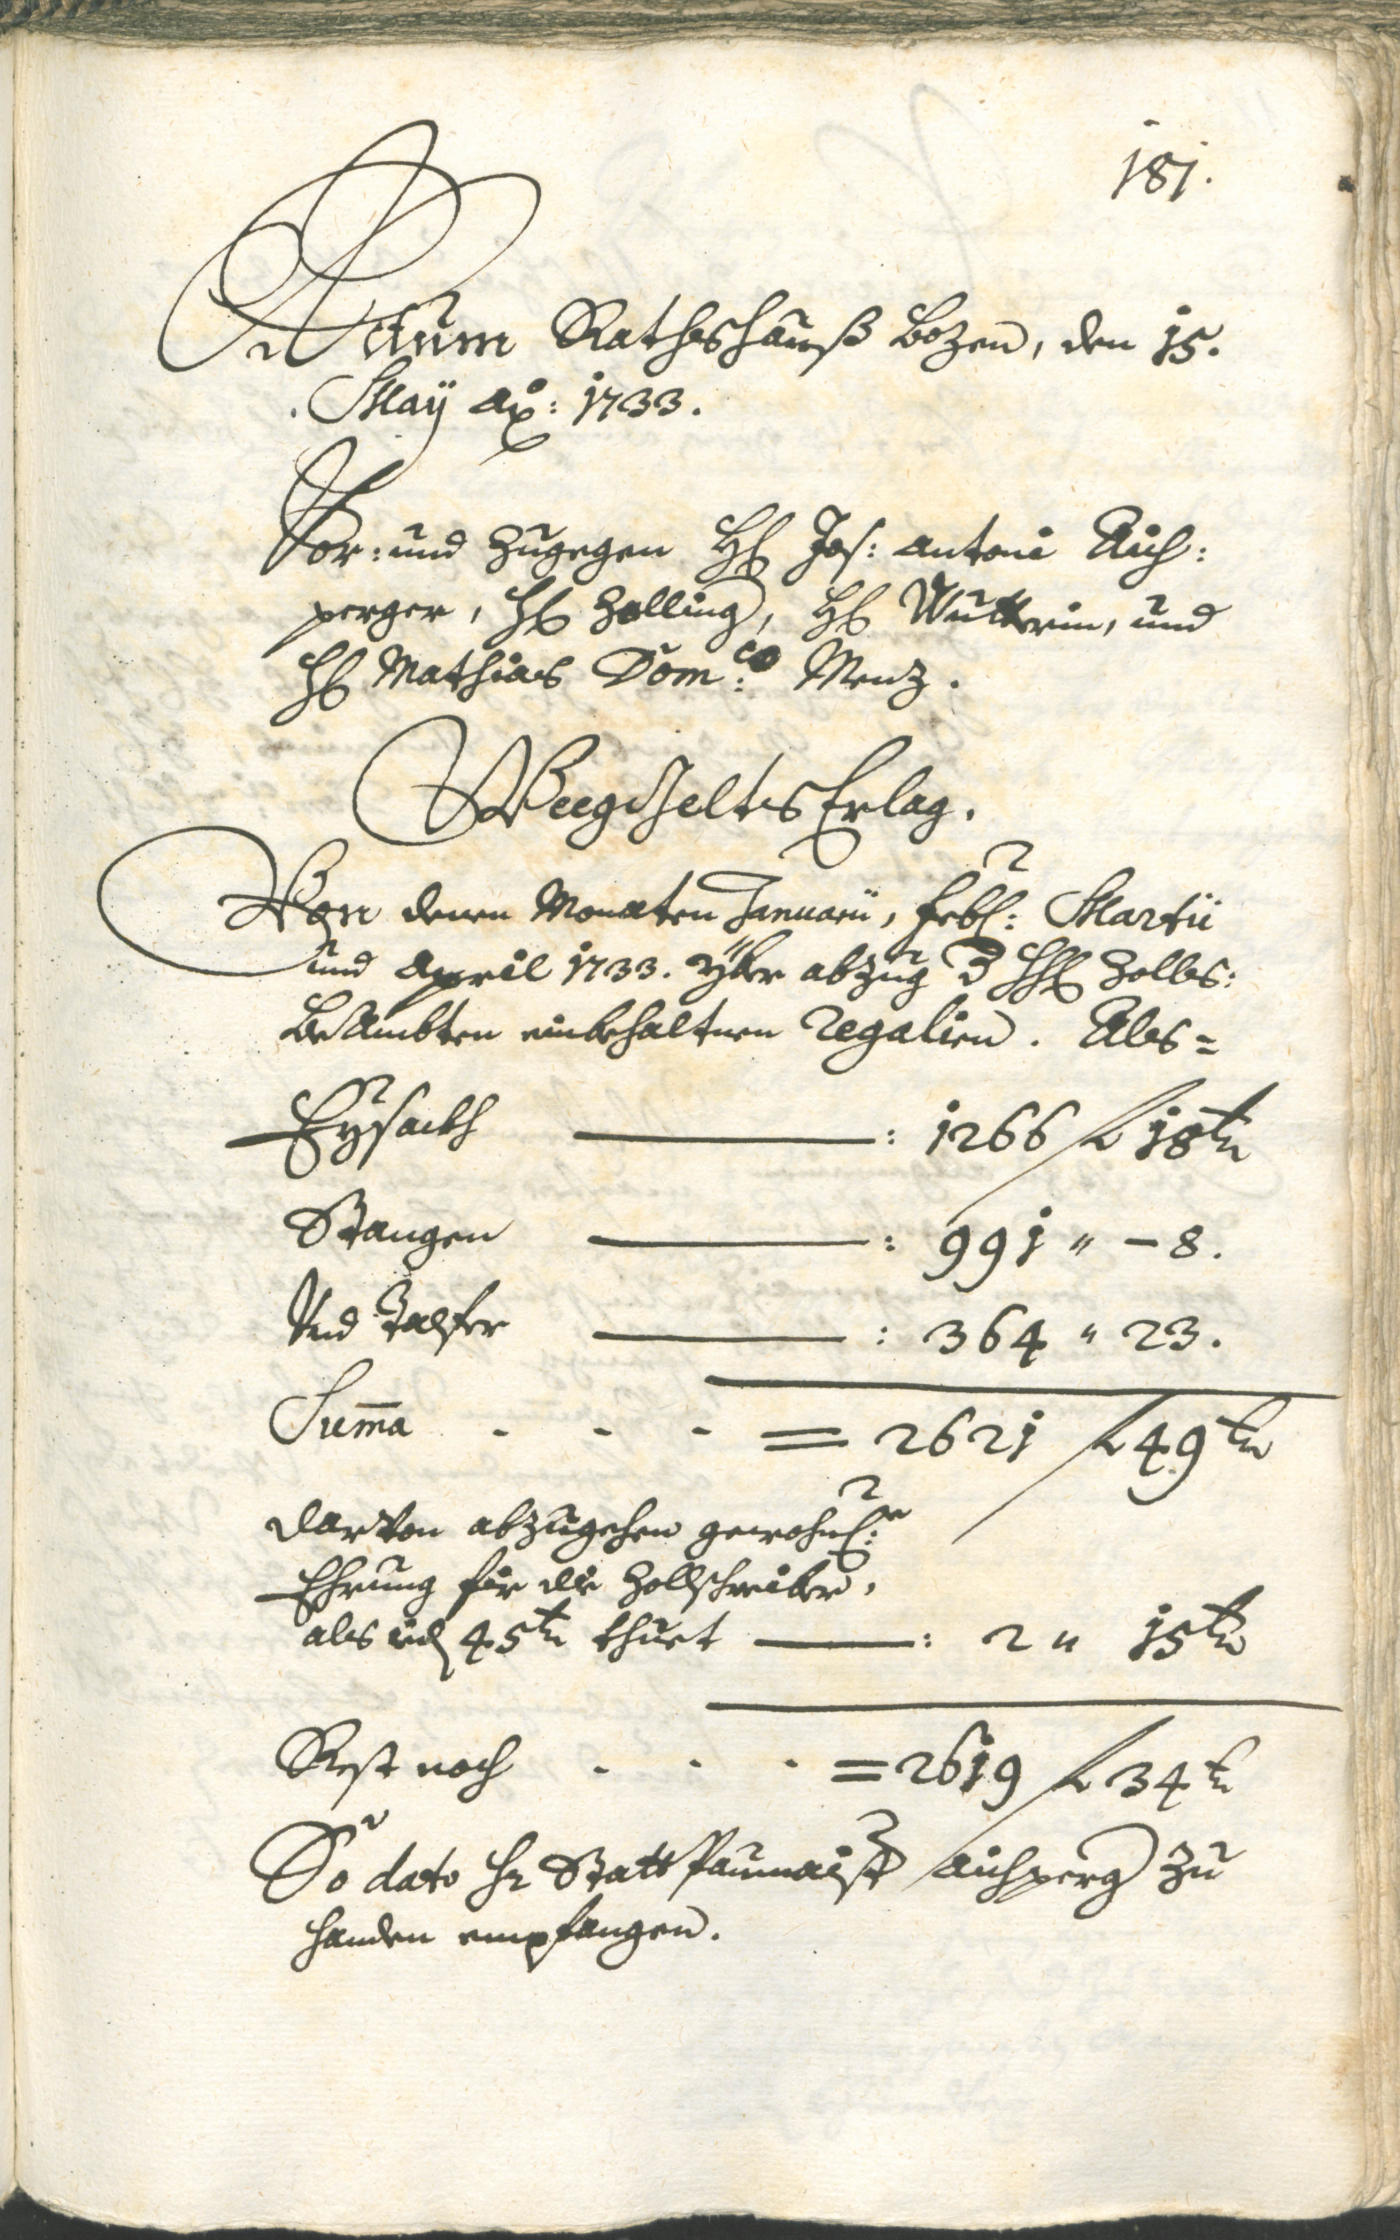 181.
Actum Rathshauß Bozen, den 15.
May ao: 1733.
Vor: und zugegen H Jos: Antoni Aich:
perger, H Zalling, H Wutterin, und
H Mathias Dom:co Menz.
Weeggelts Erlag.
Von denen Monaten Januarii, Febr: Martii
und April 1733. yber abzug d HH Zolls:
Beambten einbehaltnen Regalien. Als=
Eysackh : 1266 f 18 kr
Stangen : 991 " - 8.
Und Talfer : 364 " 23.
Suma . . . = 2621 f 49 kr
darvon abzugehen gewohnl:e
Ehrung für die Zollschreiber,
als ieds 45 kr thuet : 2 " 15 kr
Rest noch . . . = 2619 f 34 kr
So dato Hr Statt Paumaister Aichperg zu
handen empfangen.